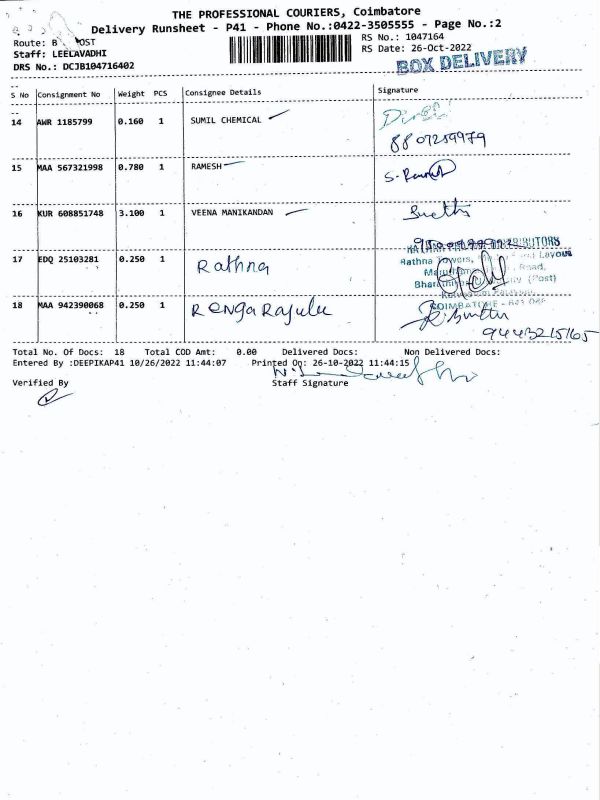 THE PROFESSIONAL COURIERS, Coimbatore
Delivery Runsheet - P41 - Phone No.:0422-3505555 - Page No.:2
Route: B OST
RS No.: 1047164
Staff: LEELAVADHI
RS Date: 26-Oct-2022
DRS No.: DCJB104716402
BOX DELIVERY
S No Consignment No Weight PCS Consignee Details Signature
14 AWR 1185799 0.160 1 SUMIL CHEMICAL
8807259979
15 MAA 567321998 0.780 1 RAMESH
16 KUR 608851748 3.100 1 VEENA MANIKANDAN
17 EDQ 25103281 0.250 1 Rathna
Rathna Towers, Layout
Road,
(Post)
COIMBATORE
18 MAA 942390068 0.250 1 RengaRajulu
9443215165
Total No. Of Docs: 18 Total COD Amt: 0.00 Delivered Docs: Non Delivered Docs:
Entered By :DEEPIKAP41 10/26/2022 11:44:07 Printed On: 26-10-2022 11:44:15
Verified By Staff Signature